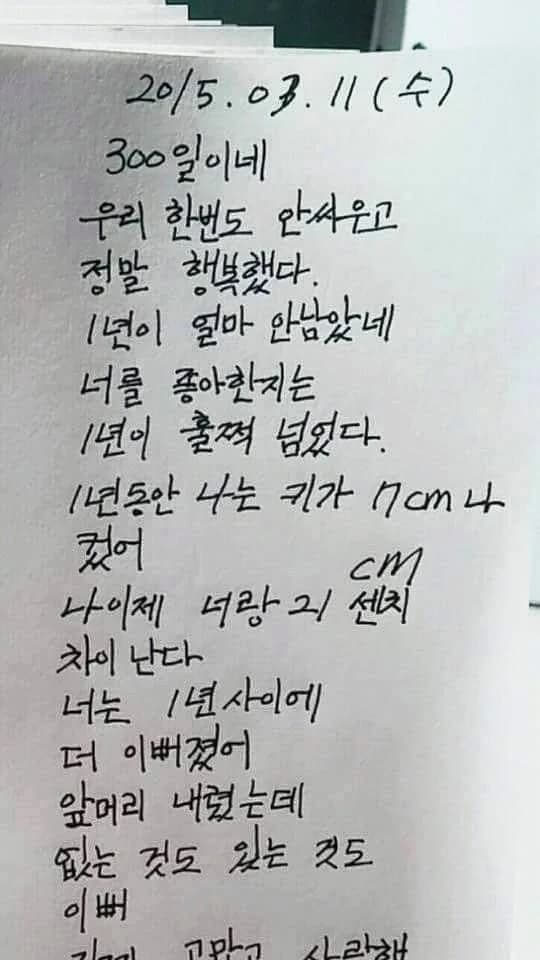 2015.03.11(수)
300일이네
우리 한번도 안싸우고
정말 행복했다.
1년이 얼마 안남았네
너를 좋아한지는
1년이 훌쩍 넘었다.
1년동안 나는 키가 17cm나
컸어
cm
나이제 너랑 21 센치
차이 난다
너는 1년사이에
더 이뻐졌어
앞머리 내렸는데
없는 것도 있는 것도
이뻐
고맙고 사랑해